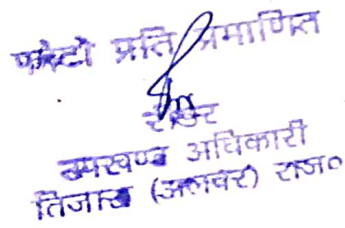 फोटो प्रति प्रमाणित
रीडर
उपखण्ड अधिकारी
तिजारा (अलवर) राज०